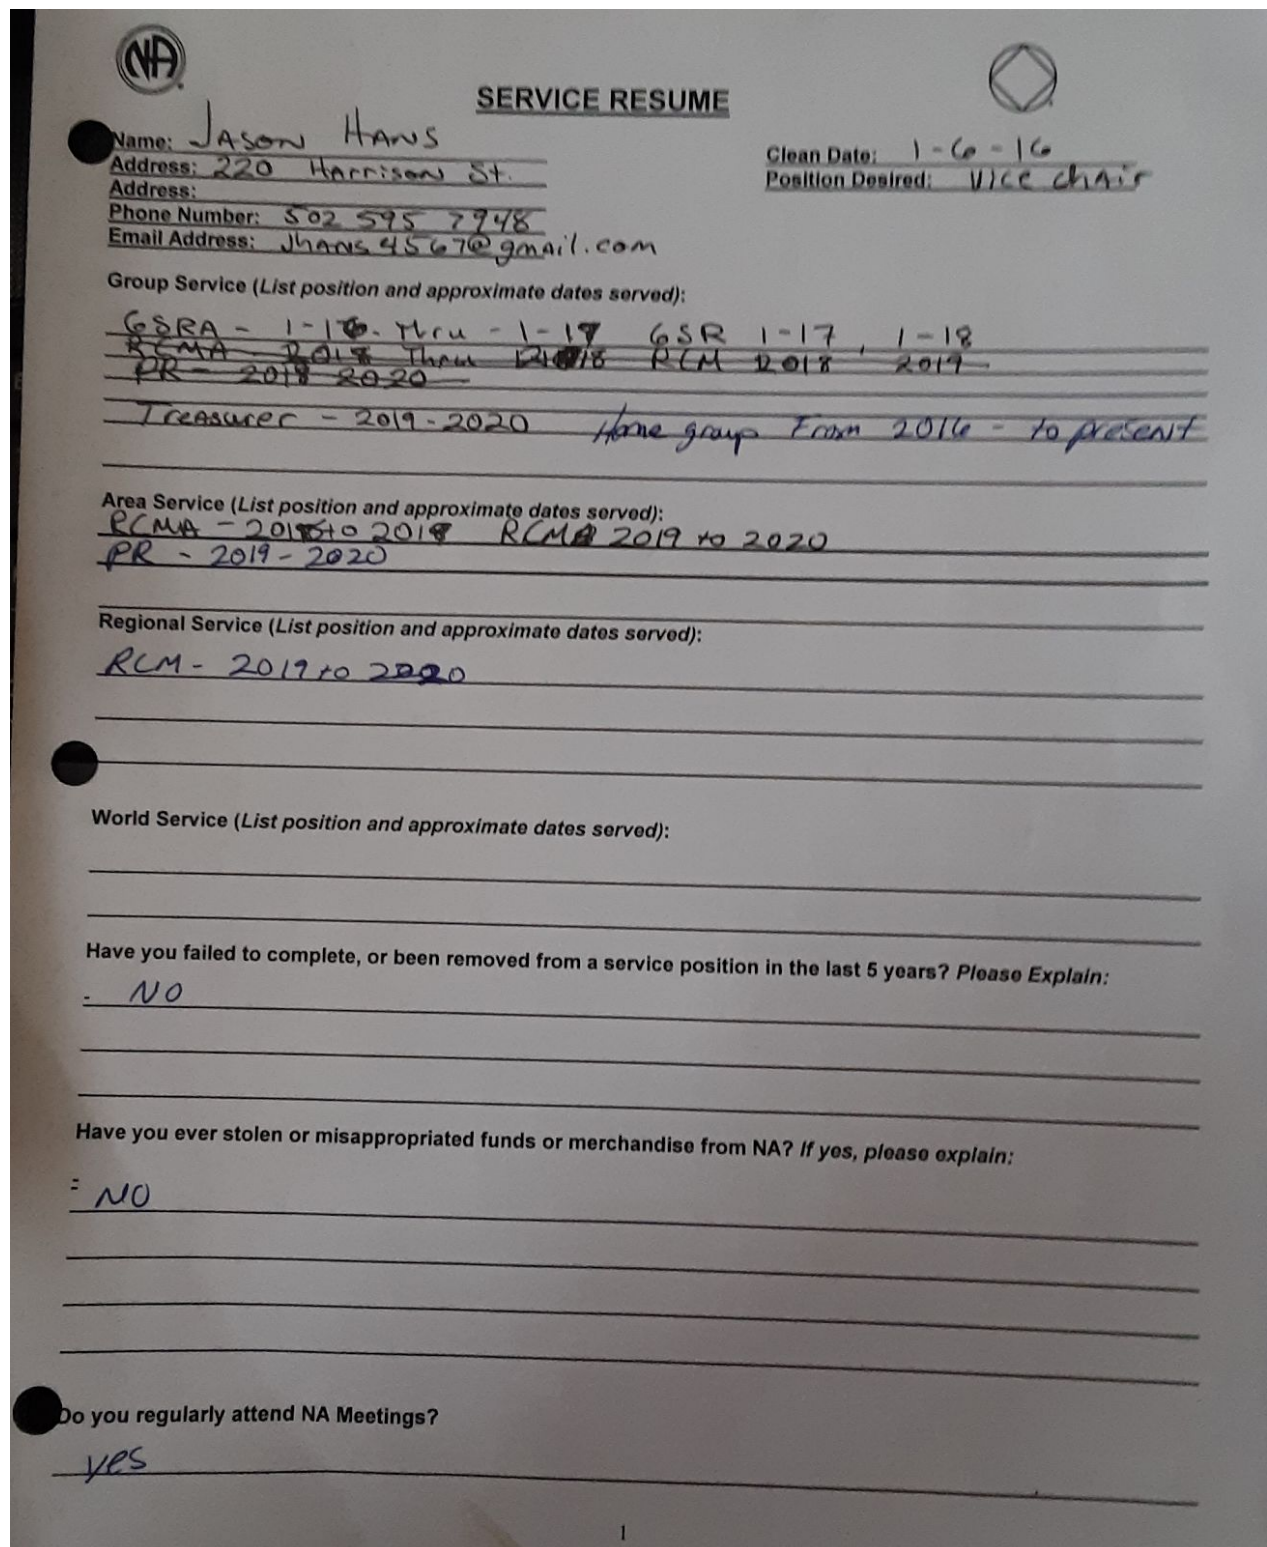 NA
SERVICE RESUME
Name: JASON HANS
Clean Date: 1-6-16
Address: 220 Harrison St.
Position Desired: Vice chair
Address:
Phone Number: 502 595 7948
Email Address: Jhans4567@gmail.com
Group Service (List position and approximate dates served):
GSRA - 1-16 - thru - 1-17 GSR 1-17, 1-18
RCMA - 2018 Thru RCM 2018 2019
PR - 2018 2020
Treasurer - 2019-2020 Home group From 2016 - to present
Area Service (List position and approximate dates served):
RCMA - to 2018 RCM 2019 to 2020
PR - 2019-2020
Regional Service (List position and approximate dates served):
RCM - 2019 to 2020
World Service (List position and approximate dates served):
Have you failed to complete, or been removed from a service position in the last 5 years? Please Explain:
- NO
Have you ever stolen or misappropriated funds or merchandise from NA? If yes, please explain:
= NO
Do you regularly attend NA Meetings?
yes
1